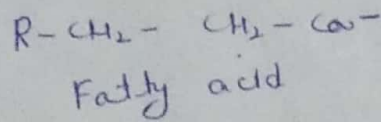 R-CH₂- CH₂-COO-
Fatty acid